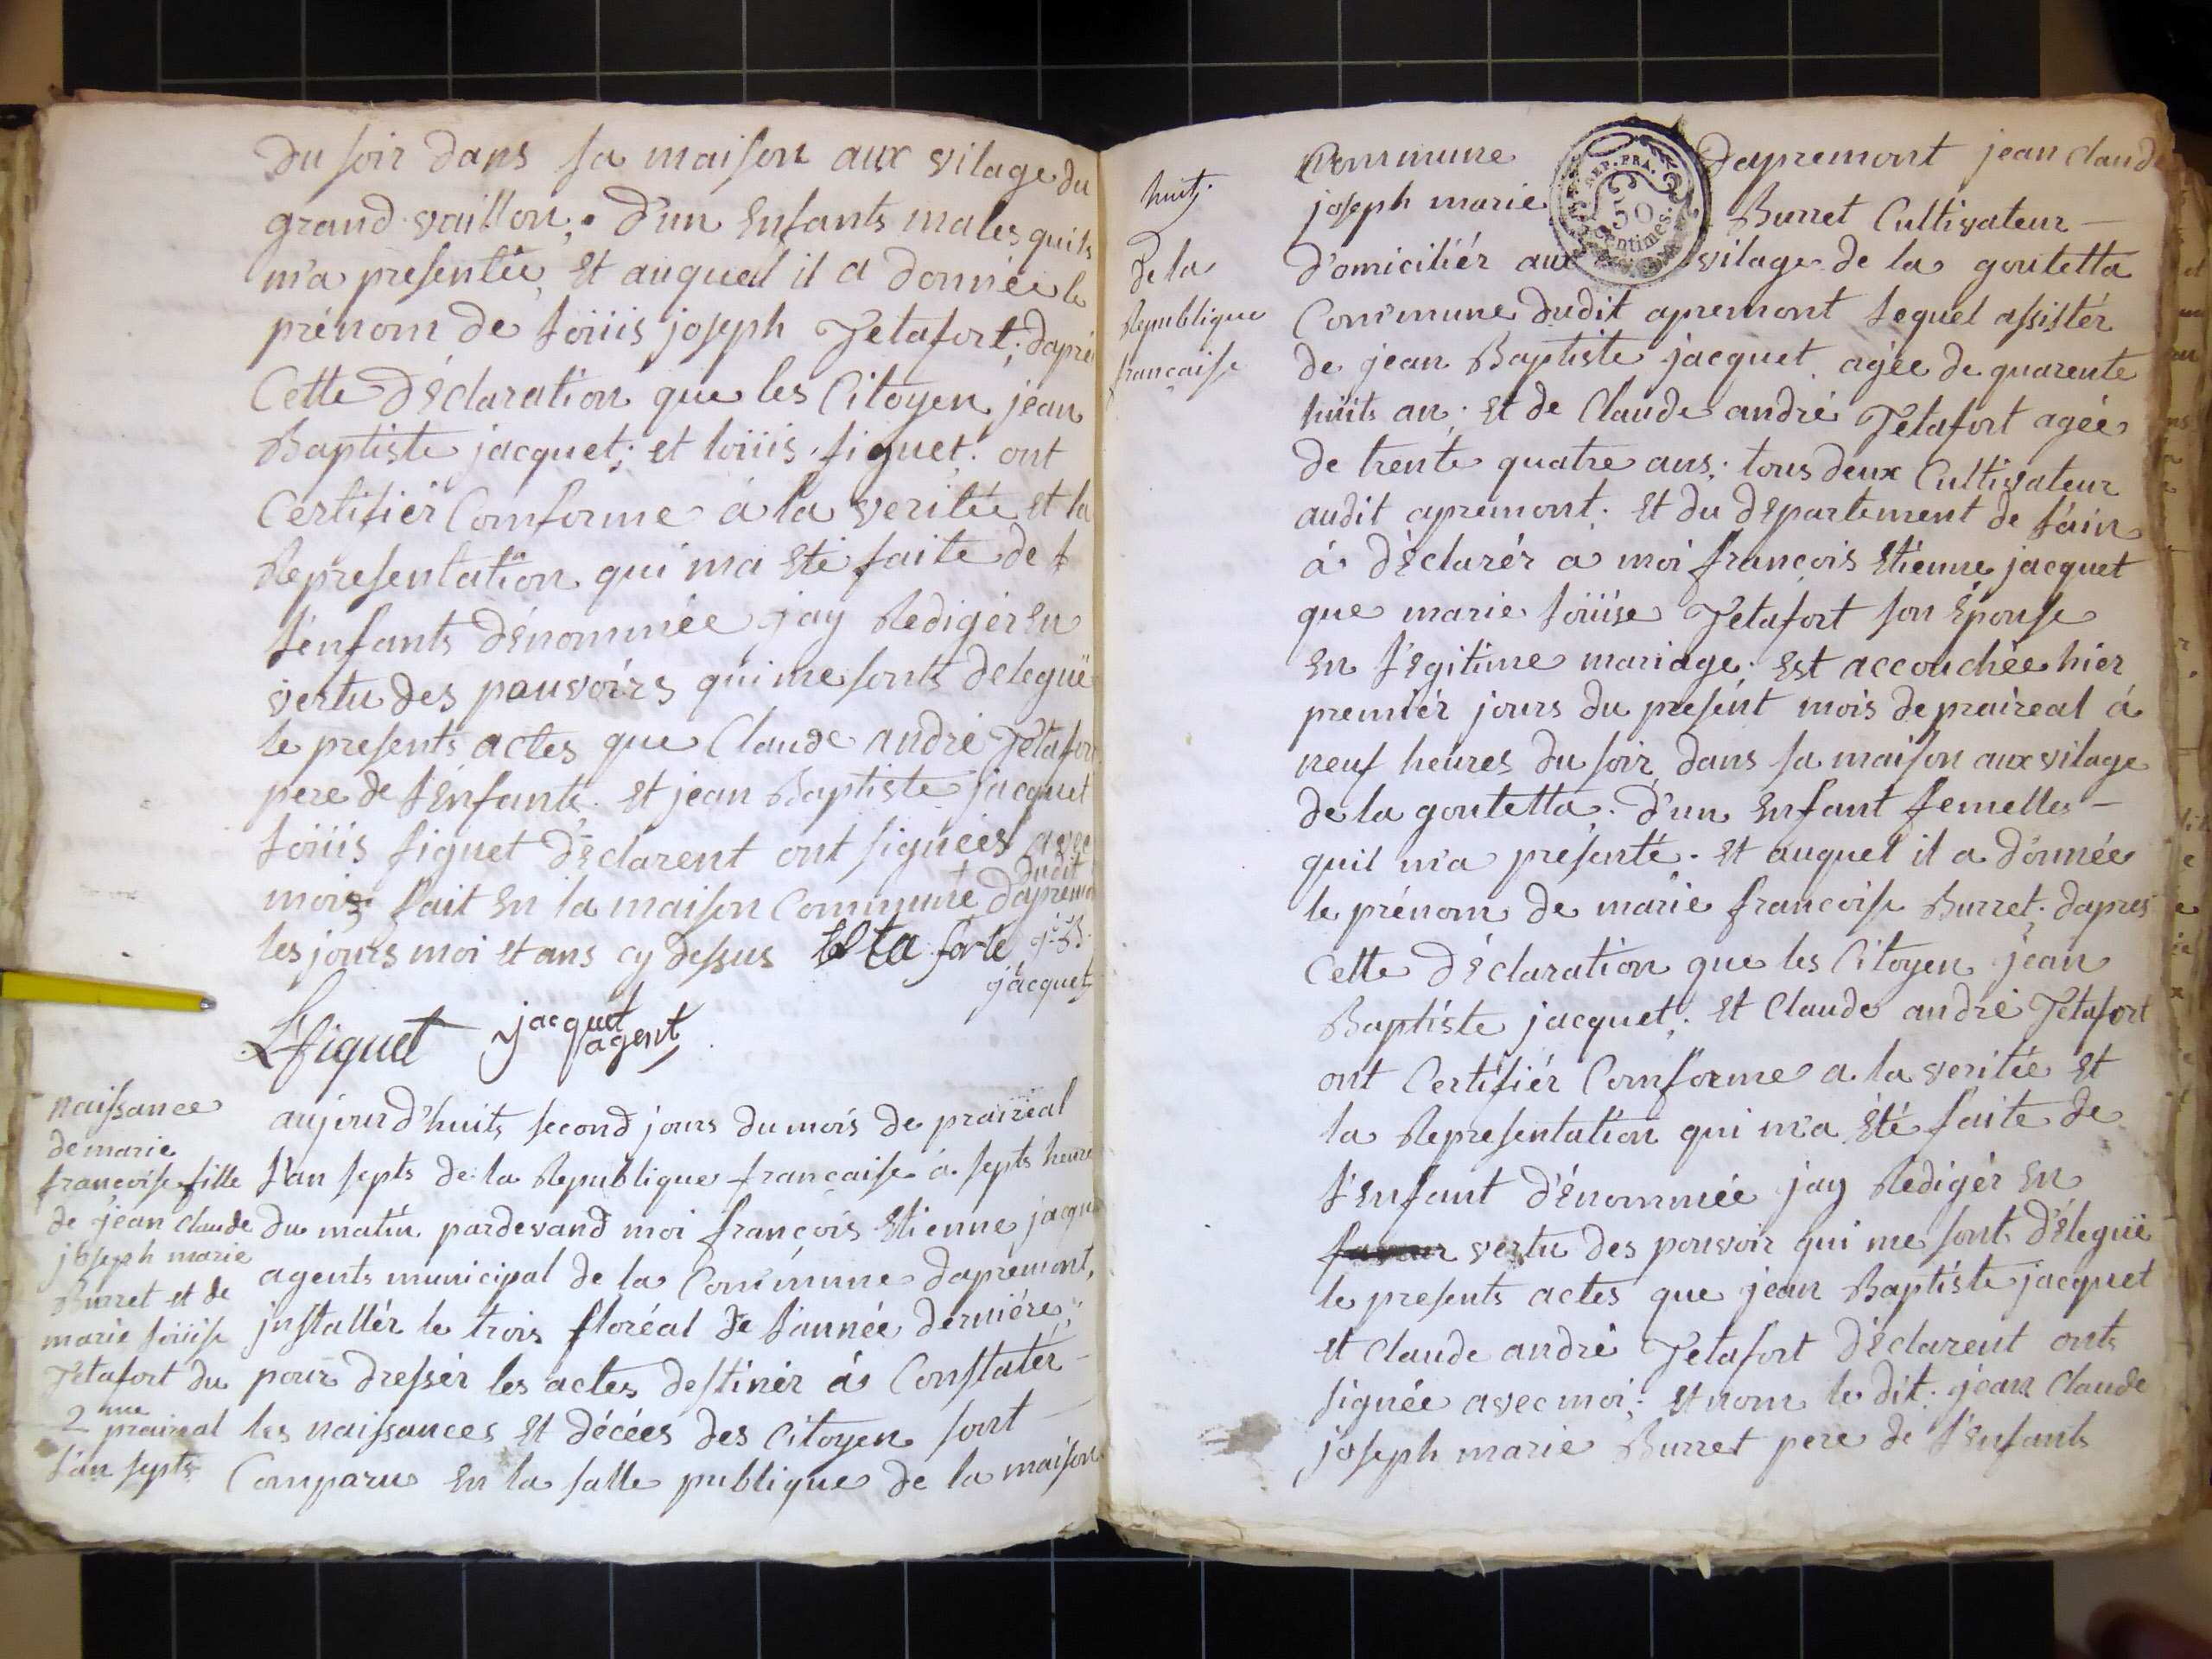 Du soir dans sa maison aux vilage du
grand vaillon; d'un Enfants males quils
m'a presentée Et auqueul il a donnée le
prénom de loüis joseph Jetafort; daprès
Cette Déclaration que les Citoyen jean
Baptiste jacquet; et loüis figuet. ont
Certifiér Comforme á la veritée et la
Representation qui ma Eté faite de l
l'enfants dénommée jay Redigér En
vertu des pouvoirs qui me sonts delegué
le presents actes que Claude andré Jetafort
pere de l'Enfants. et jean Baptiste jacquet
loüis figuet Déclarent ont signées avec
moi; fait En la maison Commune dudit dapremont
les jours moi et ans cy dessus tetaforte
jacquet
Lfiguet jacquet agent
naissance
de marie
francoise fille
de jean claude
joseph marie
Burret et de
marie loüise
Jetafort du
2 me prairial
l'an septs
aujourd'huits second jours du mois de prairial
l'an septs de la Republique francaise á septs heures
du matin pardevand moi françois Etienne jacquet
agents municipal de la Commune dapremont,
installér le trois floréal de l'année derniére;
pour dressér les actes destinér á Constatér
les naissances Et décées des Citoyen sont
Comparus En la salle publique de la maison
huit
De la
Republique
francaise
Commune Dapremont jean claude
joseph marie Burret Cultivateur
d'omiciliér aux vilage de la goutetta
Commune dudit apremont lequel assistér
de jean Baptiste jacquet agée de quarente
huits an; et de Claude andré Jetafort agée
de trente quatre ans; tous deux Cultivateur
audit apremont. Et du département de l'ain
á déclarér a moi françois Etienne jacquet
que marie loüise Jetafort son Épouse
En l'égitime mariage. Est accouchée hier
premiér jours du present mois de praireal á
neuf heures du soir dans sa maison aux vilage
de la goutetta. D'un Enfant femelles
quil m'a présenté. et auquel il a donnée
le prénom de marie francoise Burret; dapres
Cette Déclaration que les Citoyen jean
Baptiste jacquet; Et Claude andré Jetafort
ont Certifiér Comforme a la veritée Et
la Representation qui m'a Été faite de
l'Enfant d'énommée jay Rédigér En
vertu des pouvoir qui me sont d'élegué
le presents actes que jean Baptiste jacquet
et Claude andré Jetafort Déclarent onts
signée avec moi; et nom le dit. jean Claude
joseph marie Burret pere de l'Enfants
REP. FRA.
50
Centimes.